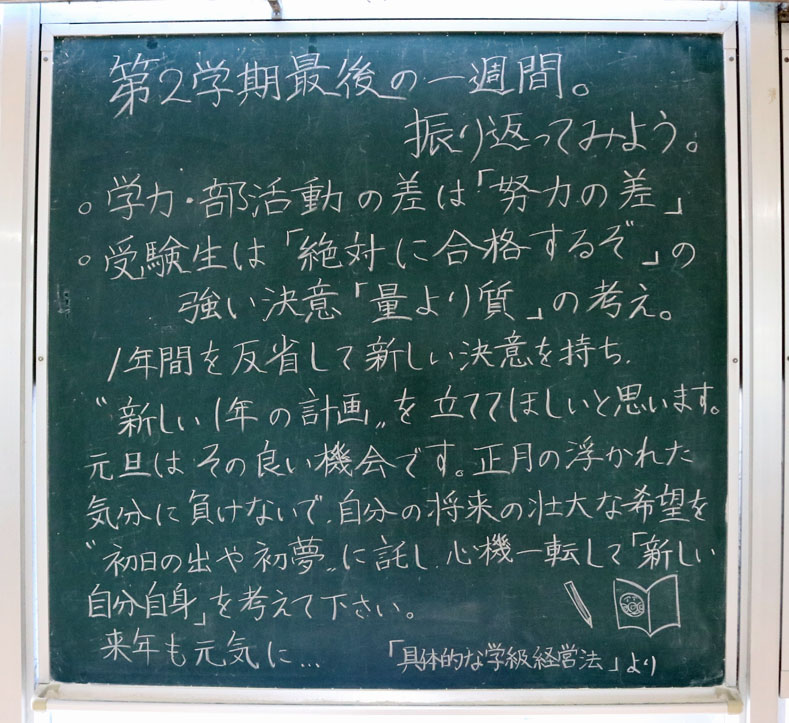 第2学期最後の一週間。
振り返ってみよう。
○学力・部活動の差は「努力の差」
○受験生は「絶対に合格するぞ」の
強い決意「量より質」の考え。
1年間を反省して新しい決意を持ち、
〝新しい1年の計画〟を立ててほしいと思います。
元旦はその良い機会です。正月の浮かれた
気分に負けないで、自分の将来の壮大な希望を
〝初日の出や初夢〟に託し、心機一転して「新しい
自分自身」を考えて下さい。
来年も元気に…
「具体的な学級経営法」より